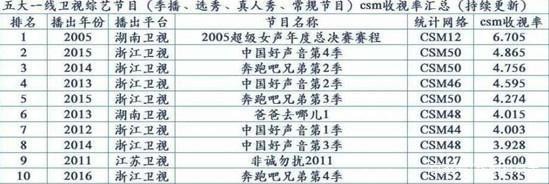 五大一线卫视综艺节目（季播、选秀、真人秀、常规节目）csm收视率汇总（持续更新）
排名 播出年份 播出平台 节目名称 统计网络 收视率
1 2005 湖南卫视 2005超级女声年度总决赛赛程 CSM12 6.705
2 2015 浙江卫视 中国好声音第4季 CSM50 4.865
3 2014 浙江卫视 奔跑吧兄弟第2季 CSM50 4.756
4 2013 浙江卫视 中国好声音第2季 CSM46 4.595
5 2015 浙江卫视 奔跑吧兄弟第3季 CSM50 4.274
6 2013 湖南卫视 爸爸去哪儿1 CSM48 4.015
7 2012 浙江卫视 中国好声音第1季 CSM44 4.003
8 2014 浙江卫视 中国好声音第3季 CSM48 3.928
9 2011 江苏卫视 非诚勿扰2011 CSM27 3.600
10 2016 浙江卫视 奔跑吧兄弟第4季 CSM52 3.585